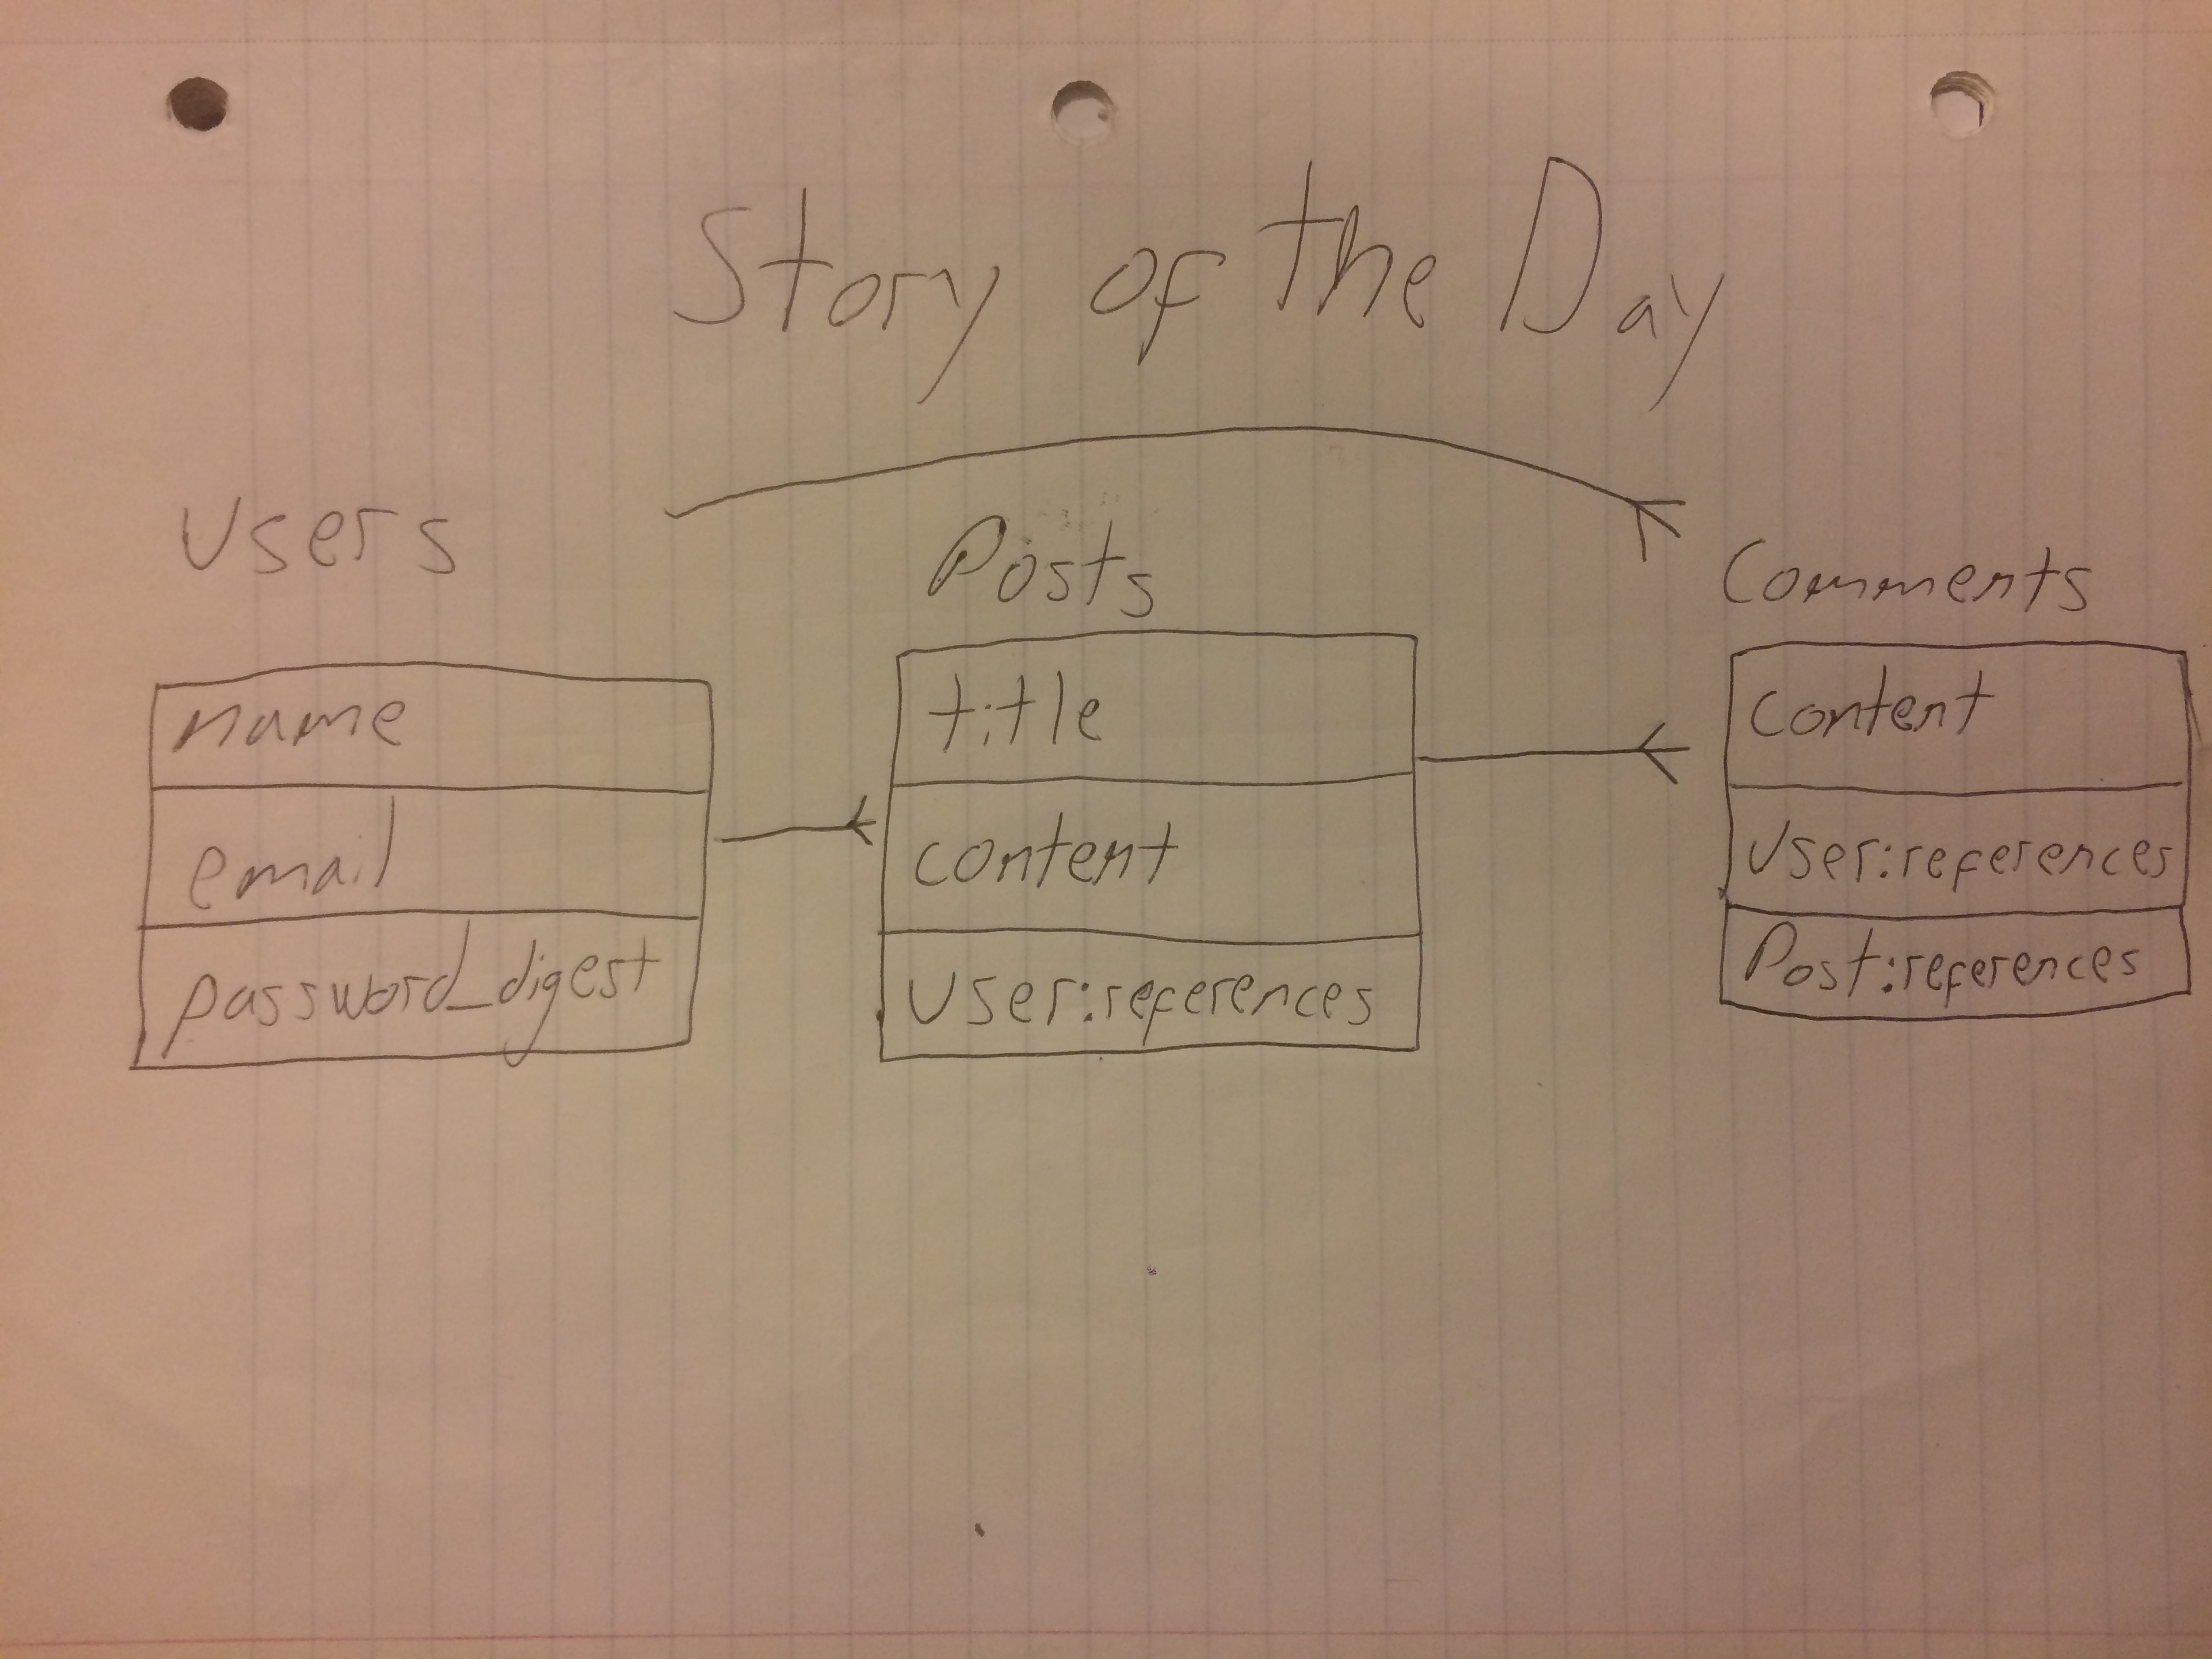 Story of the Day
Users
name
email
password_digest
Posts
title
content
User:references
Comments
Content
User:references
Post:references